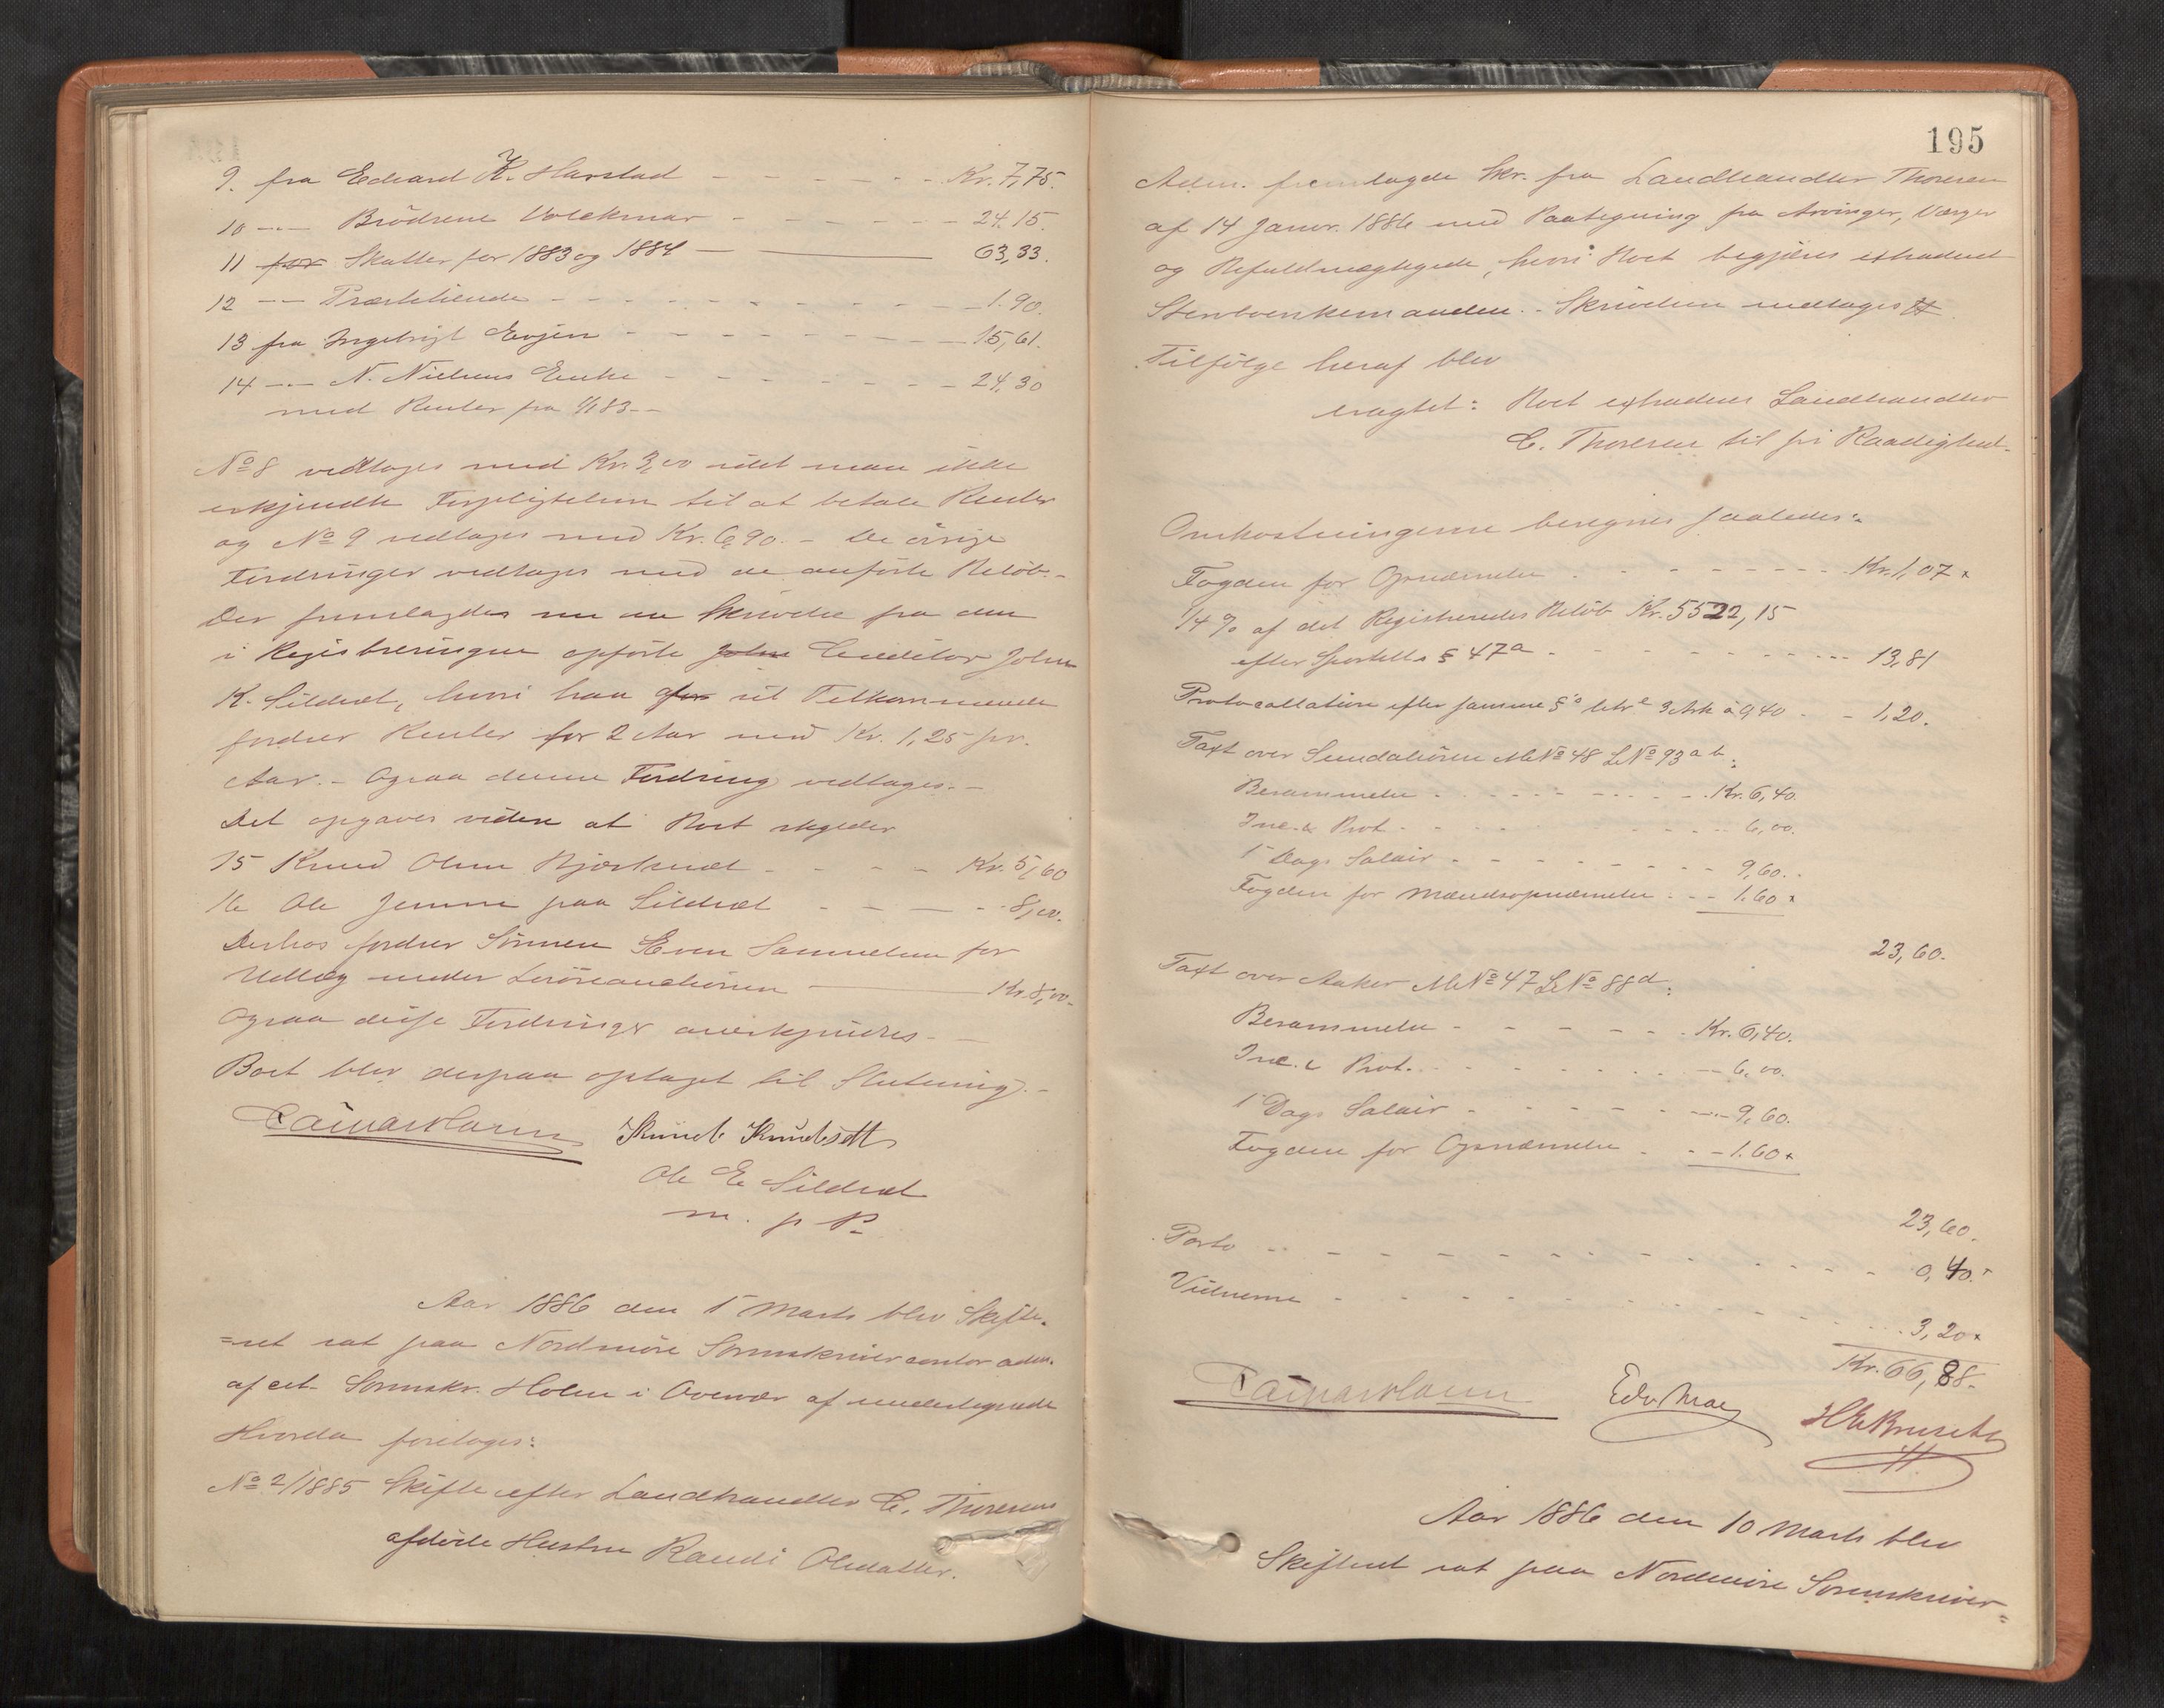 9. fra Edvard K. Harstad - - - - - - Kr. 7,75.
10 -"- Brödrene Volckmar - - - - - - 24.15.
11 for Skatter for 1883 og 1884 63,33.
12 -"- Præstetiende - - - - - - 1.90.
13 fra Ingebrigt Evjen - - - - - - 15,61.
14 -"- N. Nielsens Enke - - - - - - 24,30
med Renter fra 1/1 83.-
No 8 vedtages med Kr. 3,00 idet man ikke
erkjendte Forpligtelsen til at betale Renter
og No 9 vedtages med Kr. 6,90. - De övrige
Fordringer vedtages med de anförte Belöb. -
Der fremlagdes nu en Skrivelse fra den
i Registreringen opförte John Creditor John
K. Sildset, hvori han for sit Tilkommende
fordrer Renter for 2 Aar med Kr. 1,25 pr.
Aar. - Ogsaa denne Fordring vedtages. -
Det opgaves videre at Boet skylder
15 Knud Olsen - - - - Kr. 5,60
16 Ole Jenssen paa Sildset - - - - 8,00.
Derhos fordrer Sönnen Even Samuelsen for
Udlæg under Lösöreauctionen Kr. 8,00.
Ogsaa disse Fordringer anerkjendes. -
Boet blev derpaa optaget til Slutning. -
Knud Knudsött
Ole E Sildset
m. p. P.
Aar 1886 den 1 Marts blev Skifte-
=ret sat paa Nordmöre Sorenskrivercontor adm.
af cst. Sorenskr. Holm i Overvær af undertegnede
Hvorda foretoges:
No 2/1885 Skifte efter Landhandler C. Thoresens
afdöde Hustru Randi Olsdatter.
195
Adm. fremlagde Skr. fra Landhandler Thoresen
af 14 Januar. 1886 med Paategning fra Arvinger, Værger
og Befuldmægtigede, hvori Boet begjæres extraderet
Stervboenkemanden. - Skrivelsen vedtages
Tilfölge heraf blev
eragtet: Boet extraderes Landhandler
C. Thoresen til fri Raadighed.
Omkostningerne beregnes saaledes:
Fogden for Opnævnelse - - - - - - Kr. 1,07 x
1/4 % af det Registreredes Belöb Kr. 5522,15
efter Sportell. § 47a - - - - - - 13,81
Protocollation efter samme § litr e 3 Ark á 0,40 - - 1,20.
Taxt over Sundalsören MNo 48 LNo 93 a b:
Berammelse - - - - - - Kr. 6,40.
Inc. & Prot. - - - - - - 6,00.
1 Dags Salair - - - - - - 9,60.
Fogden for Mændsopnævnelse - - - 1.60 x
23,60.
Taxt over Aaker MNo 47 LNo 88d:
Berammelse - - - - - - Kr. 6,40.
Inc. & Prot. - - - - - - 6,00.
1 Dags Salair - - - - - - 9,60.
Fogden for Opnævnelse - - - 1.60 x
23,60.
Porto - - - - - - 0,40.
Vidnerne - - - - - - 3,20 x
Kr. 66,88.
Edv Moe
Aar 1886 den 10 Marts blev
Skifteret sat paa Nordmöre Sorenskriver-